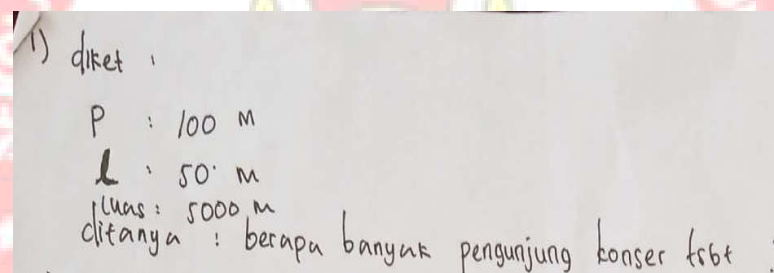 1) diket :
P : 100 M
l : 50 M
luas : 5000 M
ditanya : berapa banyak pengunjung konser trsbt